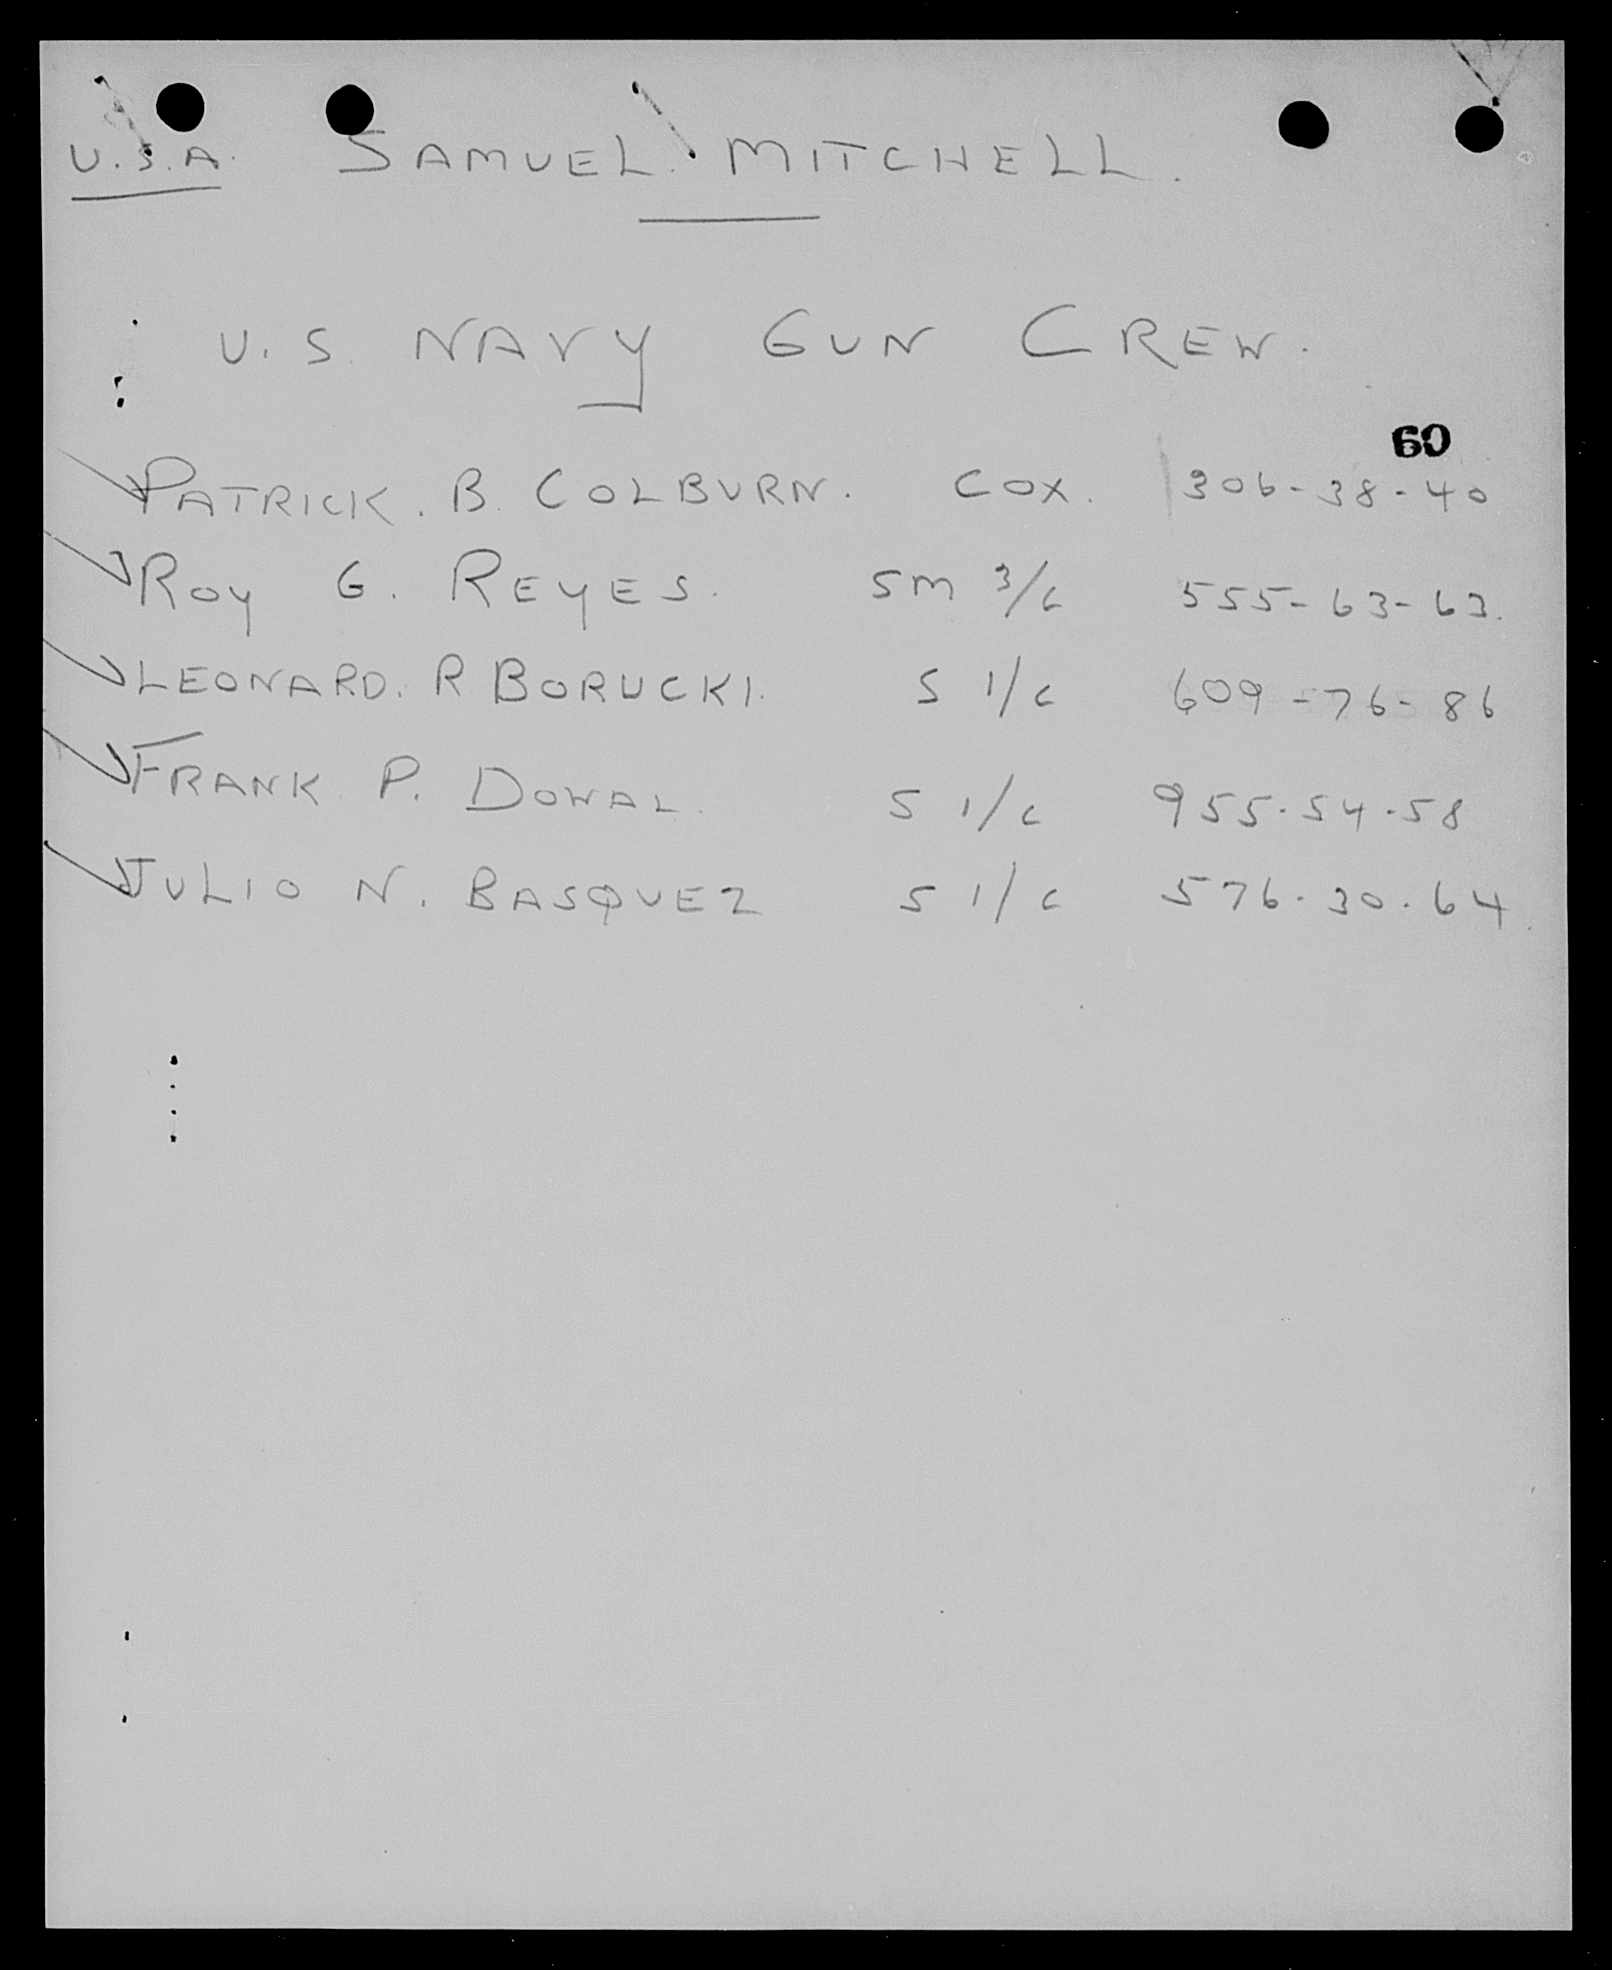 U.S.A. SAMUEL. MITCHELL.
U.S. NAVY GUN CREW.
60
PATRICK. B. COLBURN. COX. 306-38-40
ROY G. REYES. SM 3/c 555-63-63.
LEONARD. R BORUCKI. S 1/c 609-76-86
FRANK P. DOWAL. S 1/c 955-54-58
JULIO N. BASQUEZ S 1/c 576-30-64.